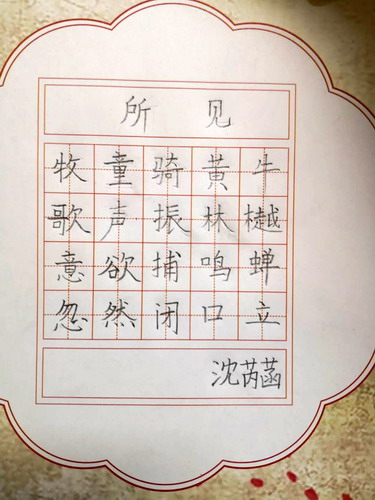 所见
牧童骑黄牛
歌声振林樾
意欲捕鸣蝉
忽然闭口立
沈芮菡